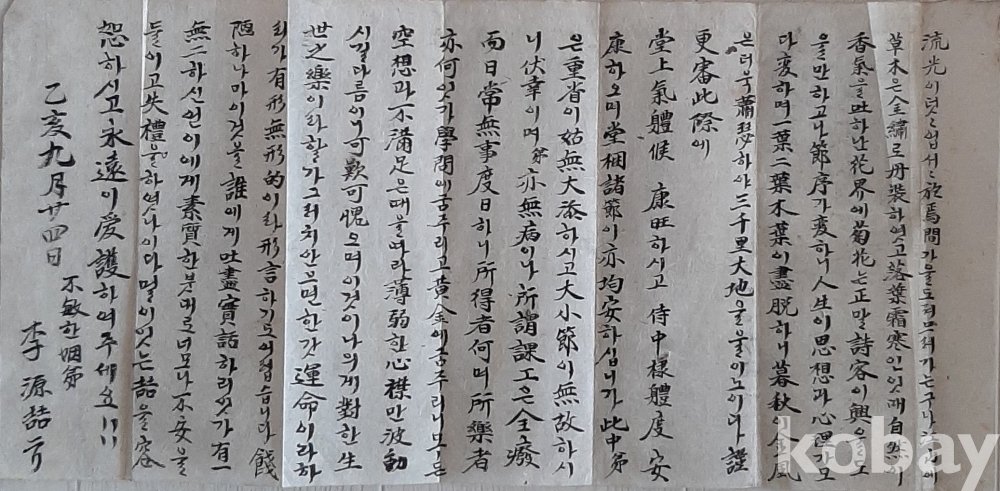 流光이덧업서 於焉間가을도
草木은全繡로丹裝하엿고落葉霜寒인잇대自然
香氣을吐하난花界에菊花는正말詩客이興을
을만하고나節序가変하니人生이思想과心理가모
다変하며一葉二葉木葉이盡脫하니暮秋金風
은더욱蕭瑟하야三千里大地을울울이노이다謹
更審此際에
堂上氣體候 康旺하시고 侍中樣體度 安
康하오며堂梱諸節이亦均安하십니가此中弟
은重省이姑無大添하시고大小節이無故하시
니伏幸이며弟亦無病이나所謂課工은全癈
而日常無事度日하니所得者何며所樂者
亦何잇가學問에굼주리고黃金에굼주리니모든
空想과不滿足은때을따라薄弱한心襟만波動
시길다름이니可歎可愧오며이것이나의게對한生
世之樂이라할가그러치안으면한갓運命이라하
릿가有形無形的이라形言하기도어렵습니다餞
陋하나마이것을誰에게吐盡實話하리잇가有一
無二하신언이에게素質한붓대로너모나不安을
들이고失禮을하여나이다멀이잇는喆을容
恕하시고永遠이爱護하여주세요!!
乙亥九月廿四日
不敏한姻弟
李源喆
kobay